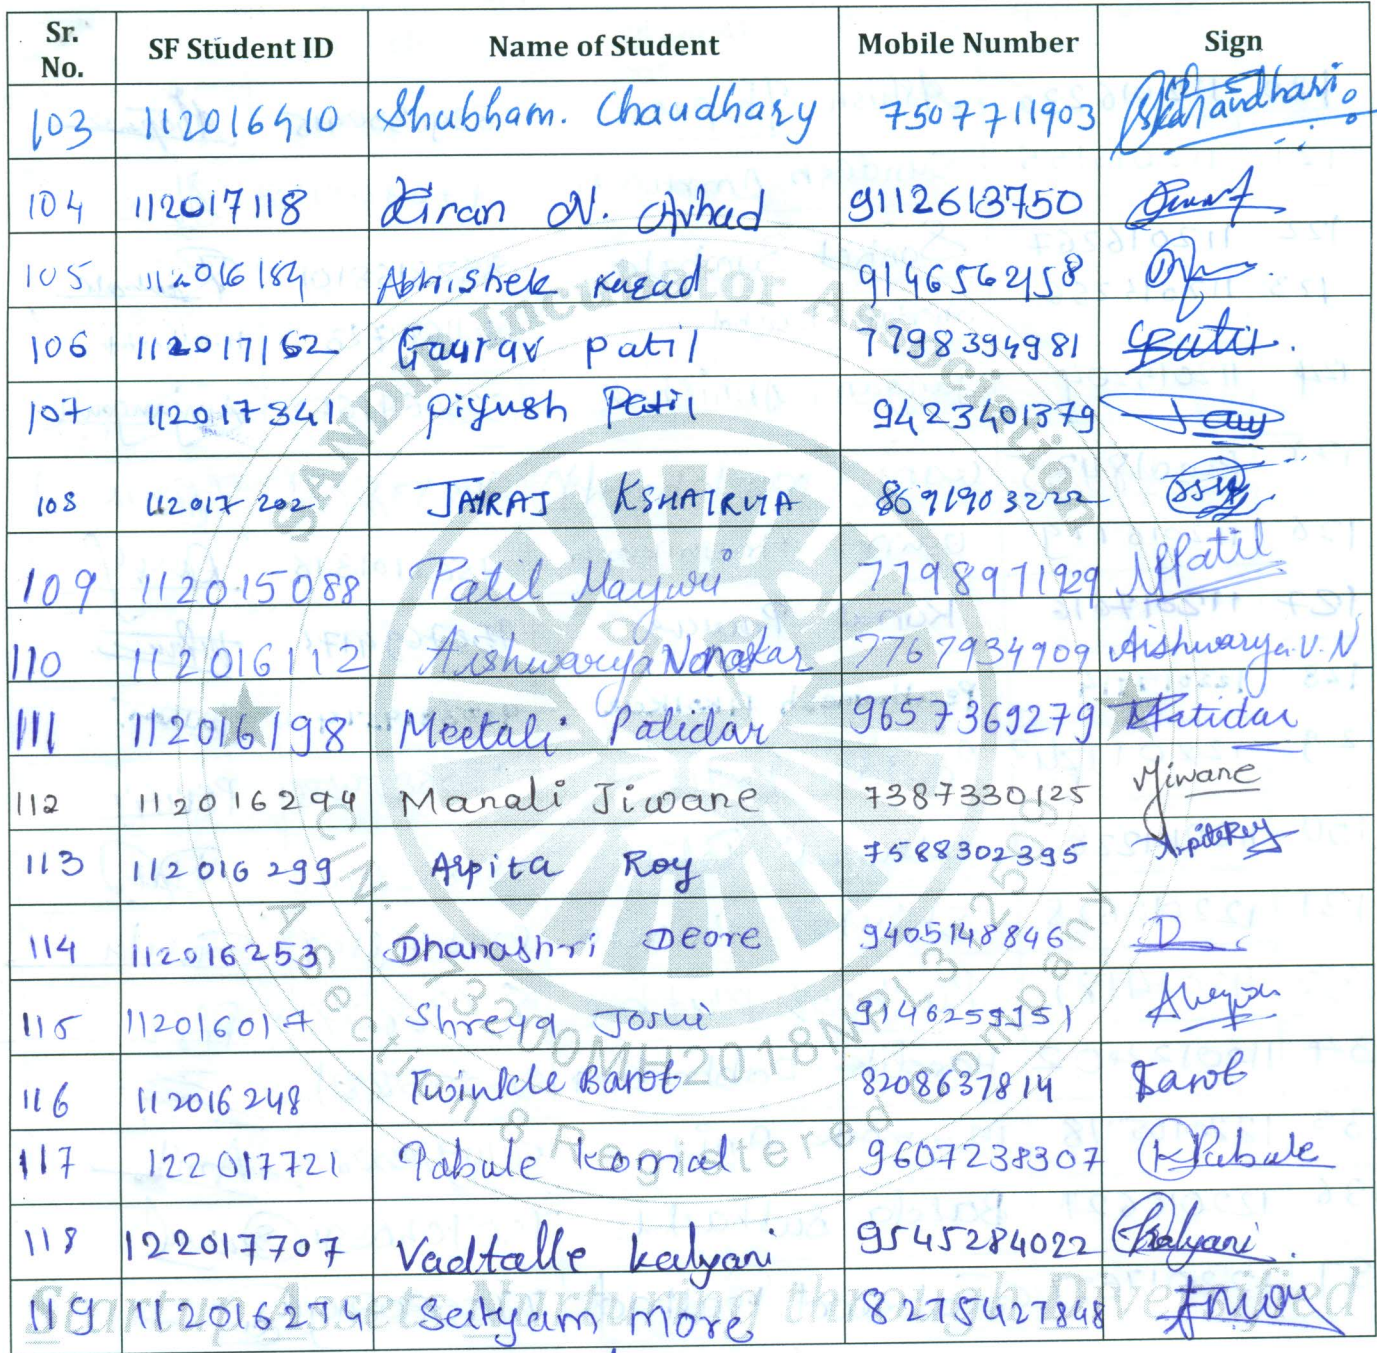 Sr. No. SF Student ID Name of Student Mobile Number Sign
103 112016410 Shubham. Chaudhary 7507711903
104 112017118 Kiran N. Avhad 9112613750
105 112016184 Abhishek Karad 9146562158
106 112017162 Gaurav patil 7798394981
107 112017341 piyush Patil 9423401379
108 112017202 JAYRAJ KSHATRIYA 8691903222
109 112015088 Patil Mayuri 7798971929 Patil
110 112016112 Aishwarya Nanaskar 7767934909 Aishwarya.V.N
111 112016198 Meetali Patidar 9657369279 Patidar
112 112016294 Manali Jiwane 7387330125 Jiwane
113 112016299 Arpita Roy 7588302395 ArpitaRoy
114 112016253 Dhanashri Deore 9405148846 D
115 112016017 Shreya Joshi 9146259951
116 112016248 Twinkle Barot 8208637814 Barot
117 122017721 Pabale Komal 9607238307 KPabale
118 122017707 Vadtalle kalyani 9545284022 Kalyani
119 112016274 Satyam more 8275427848
SANDIP Incubator Association
A Section 8 Registered Company
Startup Assets Nurturing through Diversified